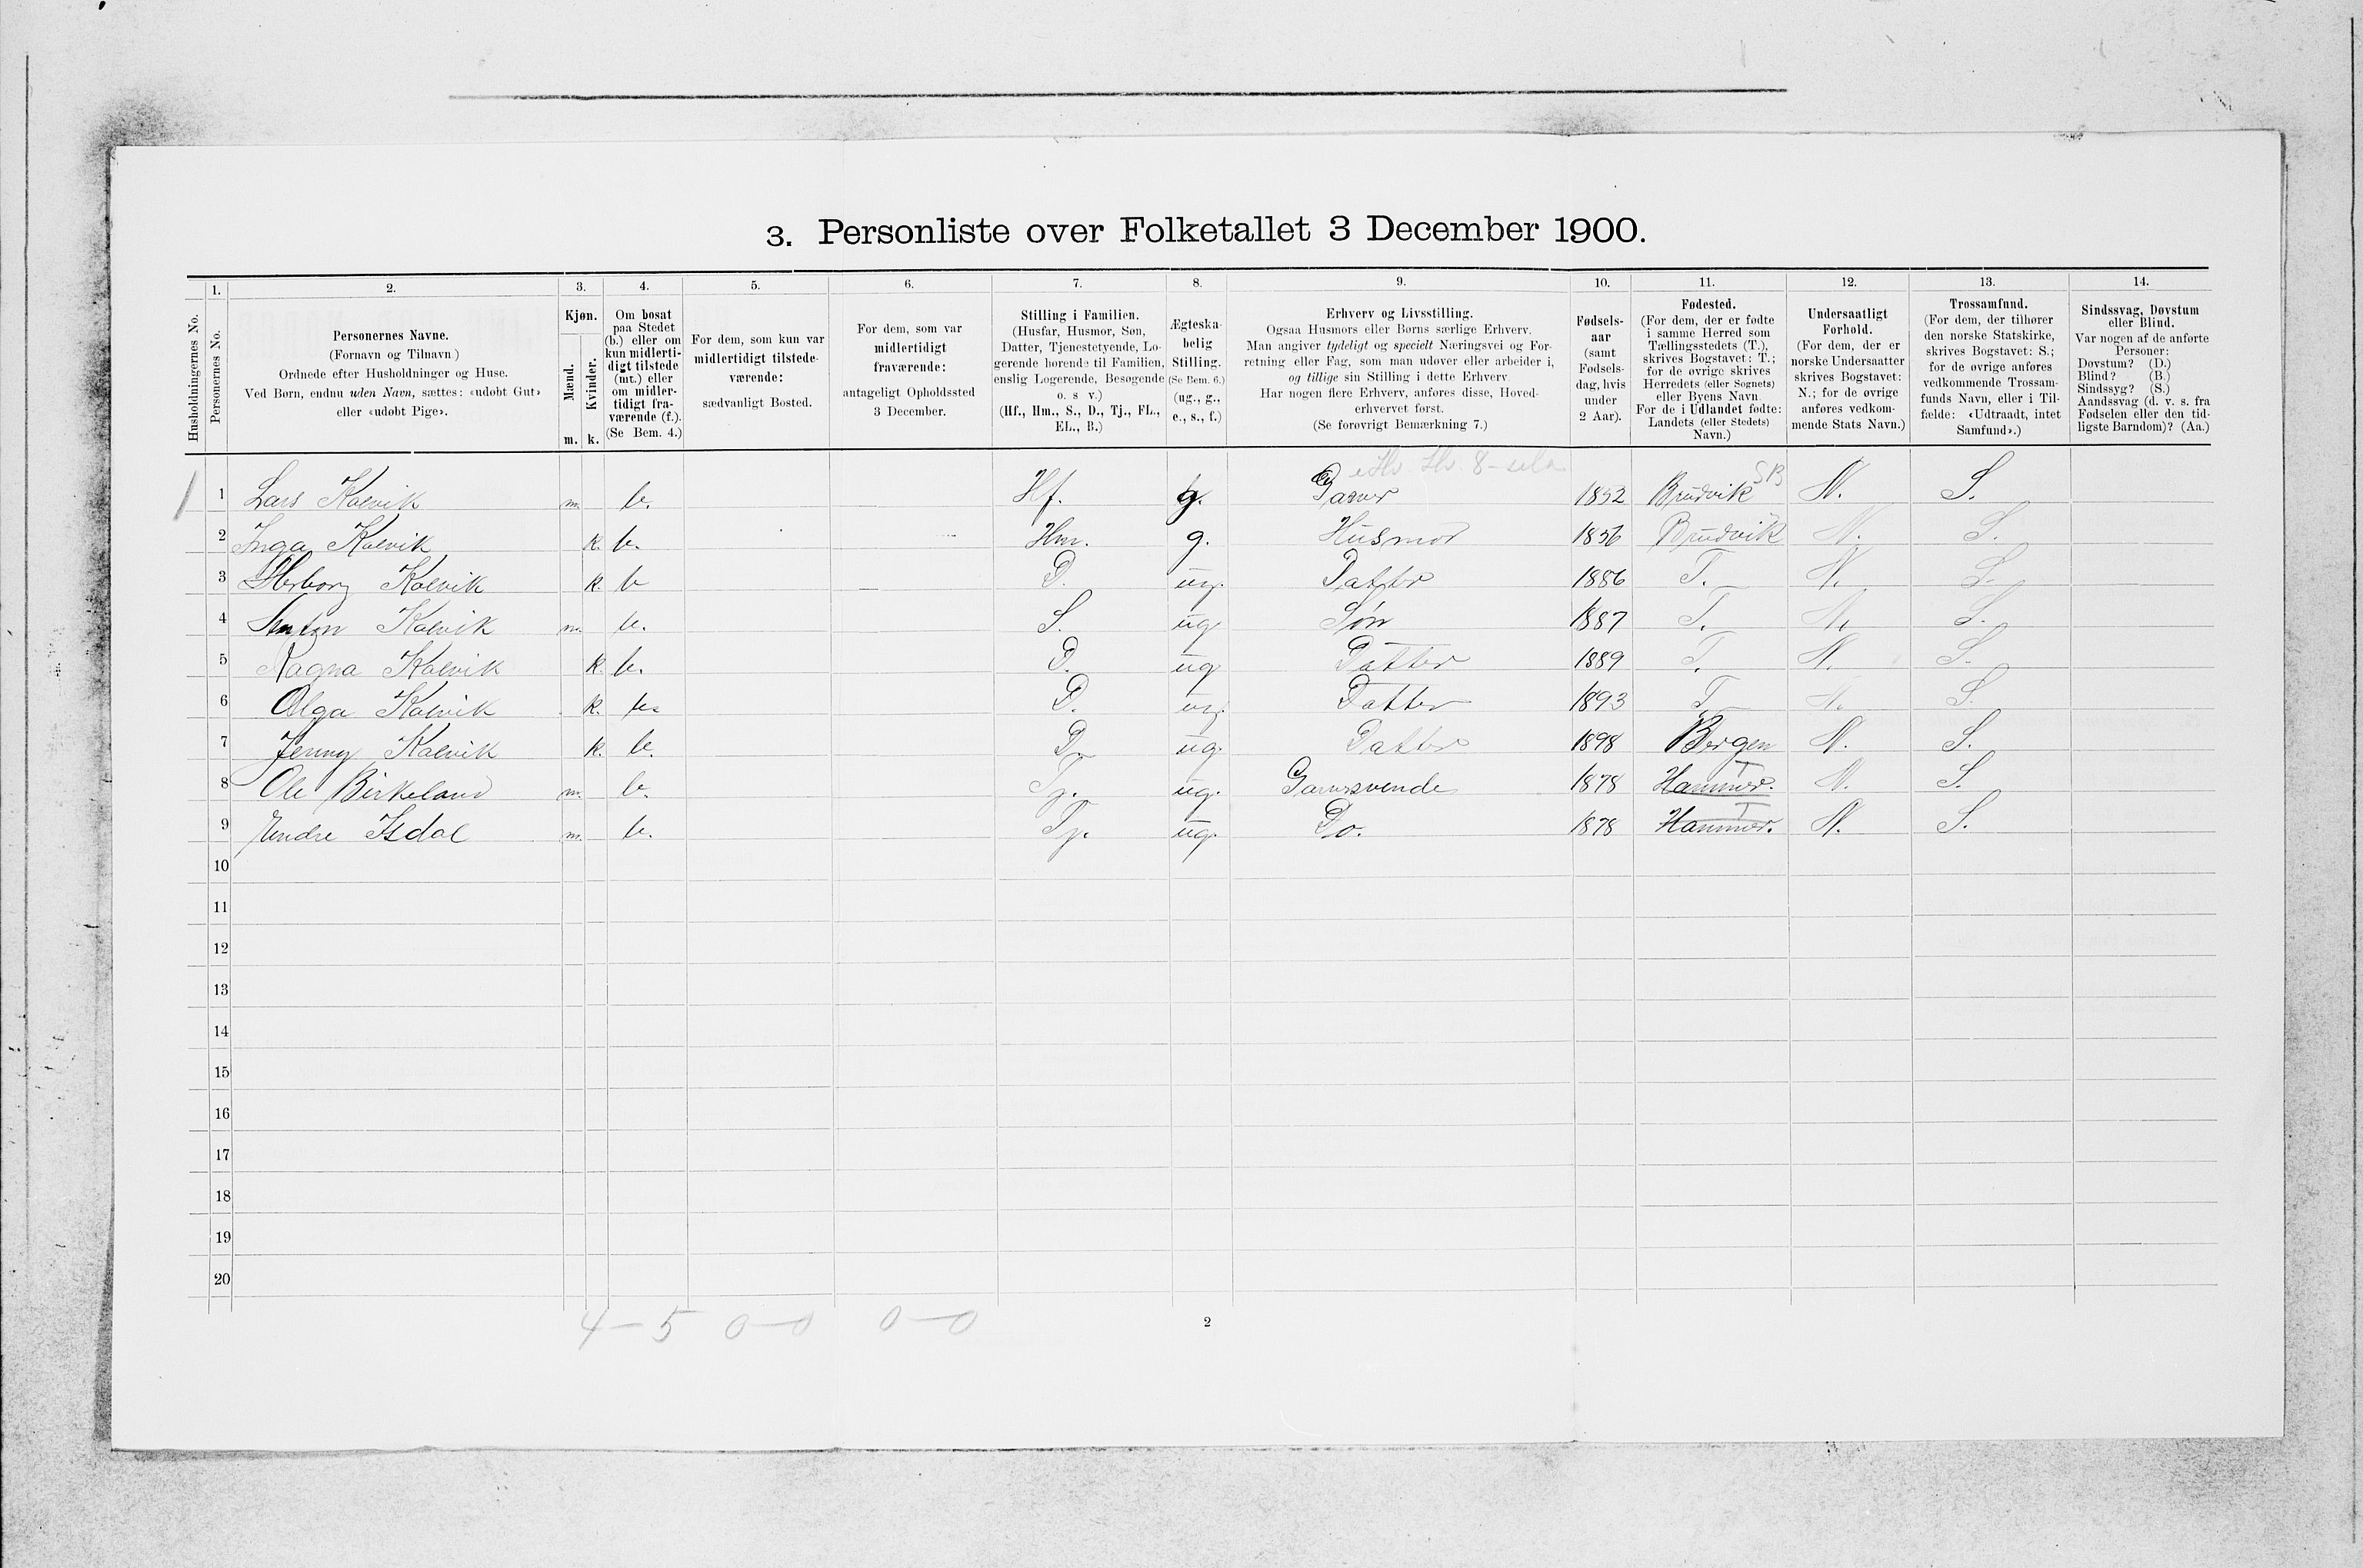 3. Personliste over Folketallet 3 December 1900.
1. 2. 3. 4. 5. 6. 7. 8. 9. 10. 11. 12. 13. 14.
Husholdningernes No.
Personernes No.
Personernes Navne.
(Fornavn og Tilnavn.)
Ordnede efter Husholdninger og Huse.
Ved Børn, endnu uden Navn, sættes: «udøbt Gut»
eller «udøbt Pige».
Kjøn.
Mænd.
Kvinder.
m. k.
Om bosat
paa Stedet
(b.) eller om
kun midlerti-
digt tilstede
(mt.) eller
om midler-
tidigt fra-
værende (f.).
(Se Bem. 4.)
For dem, som kun var
midlertidigt tilstede-
værende:
sædvanligt Bosted.
For dem, som var
midlertidigt
fraværende:
antageligt Opholdssted
3 December.
Stilling i Familien.
(Husfar, Husmor, Søn,
Datter, Tjenestetyende, Lo-
gerende hørende til Familien,
enslig Logerende, Besøgende
o. s v.)
(Hf., Hm., S., D., Tj., FL.,
EL., B.)
Ægteska-
belig
Stilling.
(Se Bem. 6.)
(ug., g.,
e., s., f.)
Erhverv og Livsstilling.
Ogsaa Husmors eller Børns særlige Erhverv.
Man angiver tydeligt og specielt Næringsvei og For-
retning eller Fag, som man udøver eller arbeider i,
og tillige sin Stilling i dette Erhverv.
Har nogen flere Erhverv, anføres disse, Hoved-
erhvervet først.
(Se forøvrigt Bemærkning 7.)
Fødsels-
aar
(samt
Fødsels-
dag, hvis
under
2 Aar).
Fødested.
(For dem, der er fødte
i samme Herred som
Tællingsstedets (T.),
skrives Bogstavet: T.;
for de øvrige skrives
Herredets (eller Sognets)
eller Byens Navn.
For de i Udlandet fødte:
Landets (eller Stedets)
Navn.)
Undersaatligt
Forhold.
(For dem, der er
norske Undersaatter
skrives Bogstavet:
N.; for de øvrige
anføres vedkom-
mende Stats Navn.)
Trossamfund.
(For dem, der tilhører
den norske Statskirke,
skrives Bogstavet: S.;
for de øvrige anføres
vedkommende Trossam-
funds Navn, eller i Til-
fælde: «Udtraadt, intet
Samfund».)
Sindssvag, Døvstum
eller Blind.
Var nogen af de anførte
Personer:
Døvstum? (D.)
Blind? (B.)
Sindssyg? (S.)
Aandssvag (d. v. s. fra
Fødselen eller den tid-
ligste Barndom)? (Aa.)
1 1 Lars Kalvik m. b. Hf. g. 1852 Brudvik SB N. S.
2 Inga Kalvik k. b. Hm. g. Husmor 1856 Brudvik N. S.
3 Herborg Kalvik k. b D. ug. Datter 1886 T. N. S.
4 Anton Kalvik m. b. S. ug Søn 1887 T. N. S.
5 Ragna Kalvik k. b. D. ug. Datter 1889 T. N. S.
6 Olga Kalvik k. b. D. ug. Datter 1893 T. N. S.
7 Jenny Kalvik k. b. D. ug. Datter 1898 Bergen N. S.
8 Ole Birkeland m. b. Tj. ug. Garversvende 1878 Hammer. T N. S.
9 Endre Isdal m. b. Tj. ug. Do. 1878 Hammer. T N. S.
10
11
12
13
14
15
16
17
18
19
20
4 – 5 0 – 0 0 – 0
2